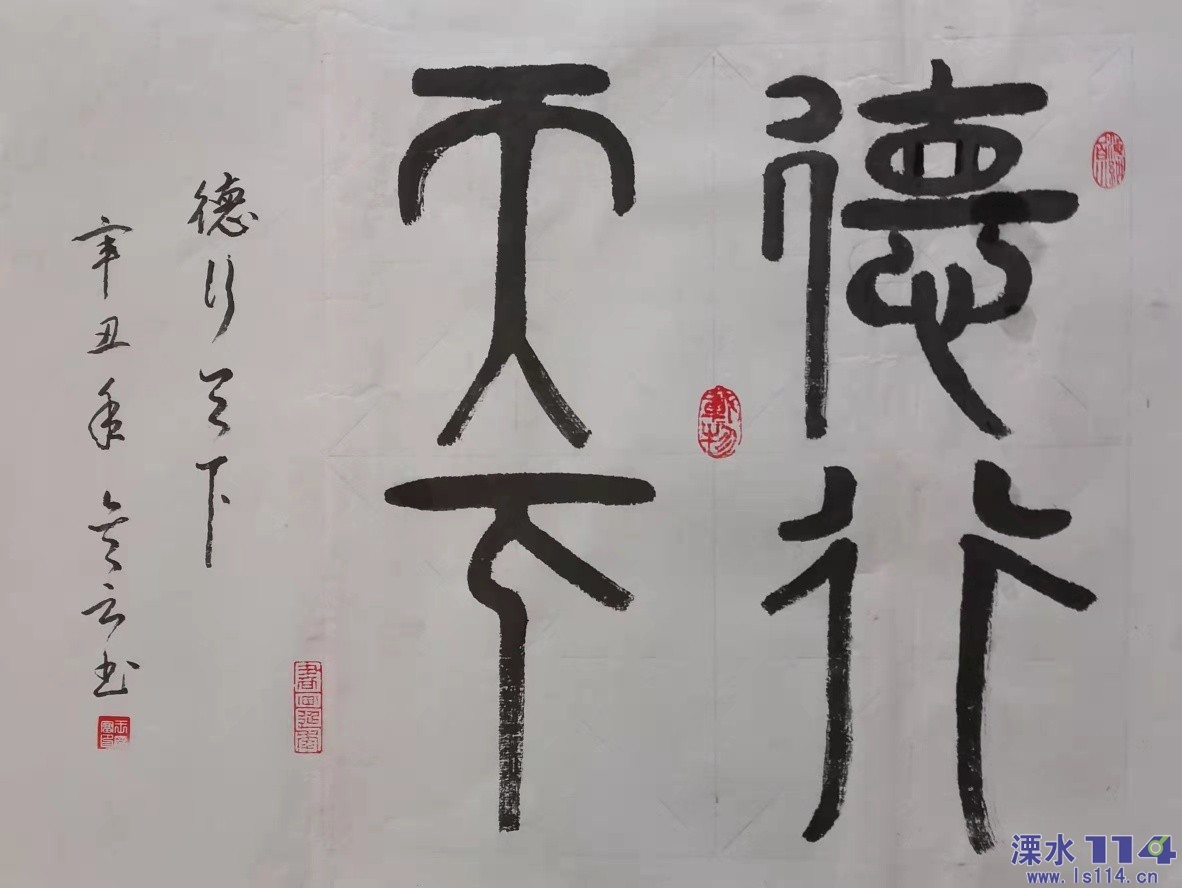 德行
天下
德行天下
辛丑年 云书
载物
溧水114
www.ls114.cn